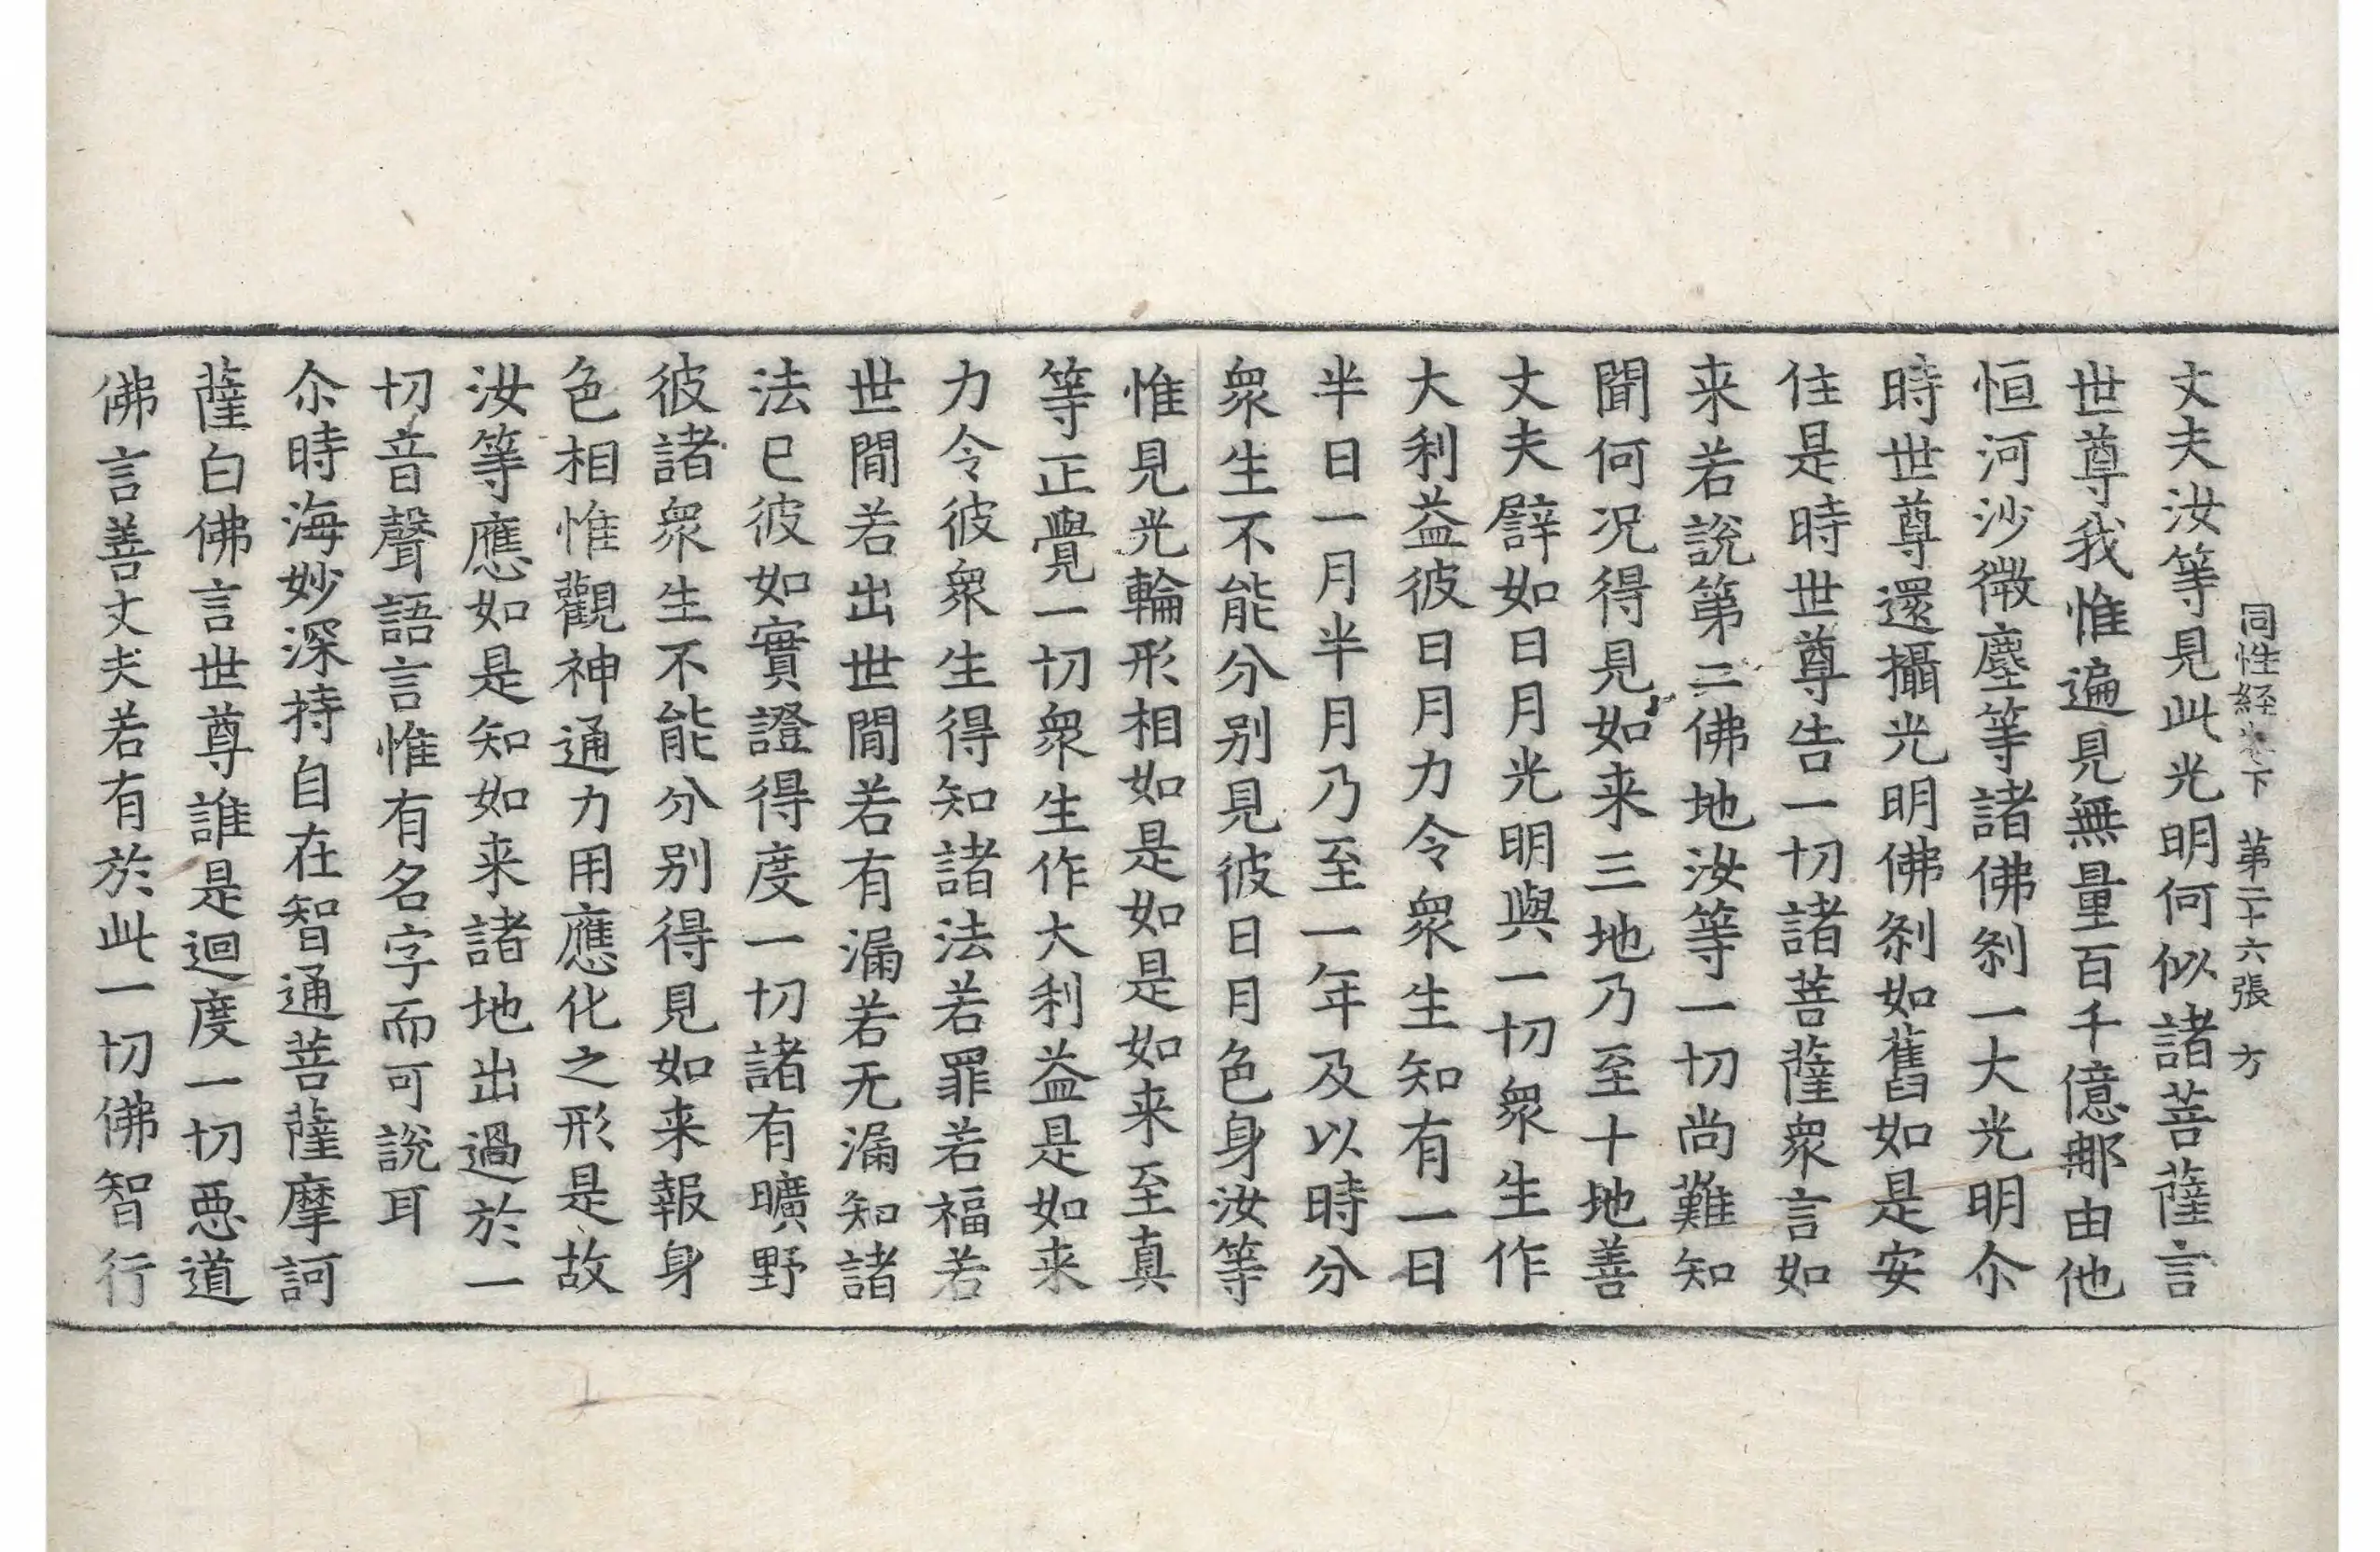 同性経卷下 第二十六張 方
丈夫汝等見此光明何似諸菩薩言
世尊我惟遍見無量百千億那由他
恒河沙微塵等諸佛剎一大光明尒
時世尊還攝光明佛剎如舊如是安
住是時世尊告一切諸菩薩衆言如
来若說第二佛地汝等一切尚難知
聞何況得見如来三地乃至十地善
丈夫譬如日月光明與一切衆生作
大利益彼日月力令衆生知有一日
半日一月半月乃至一年及以時分
衆生不能分别見彼日月色身汝等
惟見光輪形相如是如是如来至真
等正覺一切衆生作大利益是如来
力令彼衆生得知諸法若罪若福若
世間若出世間若有漏若无漏知諸
法已彼如實證得度一切諸有曠野
彼諸衆生不能分别得見如来報身
色相惟觀神通力用應化之形是故
汝等應如是知如来諸地出過於一
切音聲語言惟有名字而可說耳
尒時海妙深持自在智通菩薩摩訶
薩白佛言世尊誰是迴度一切惡道
佛言善丈夫若有於此一切佛智行